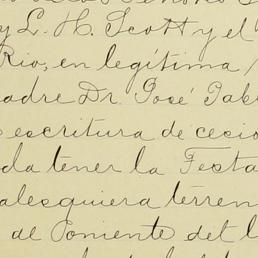 y L. H. Scott y el
Rio, en legítima
adre Dr. José Pab
escritura de cesio
da tener la Testa
alesquiera terren
al Poniente del